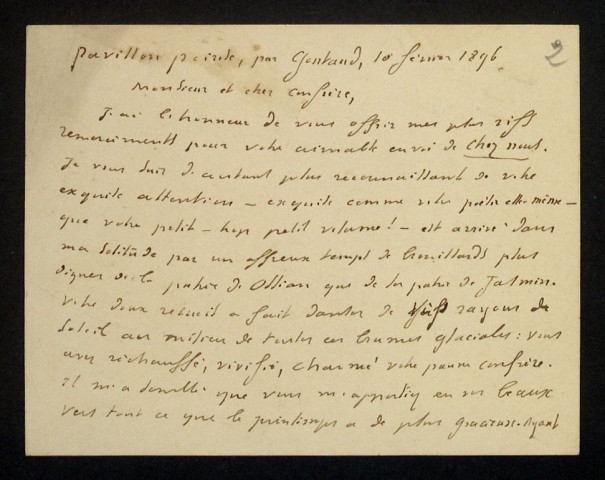 2
Pavillon Peiresc, par Gontaud, 10 février 1896
Monsieur et cher confrère,
J'ai l'honneur de vous offrir mes plus vifs
remerciments pour votre aimable envoi de Chez nous.
Je vous suis d'autant plus reconnaissant de votre
exquise attention — exquise comme votre poésie elle-même —
que votre petit — trop petit volume! — est arrivé dans
ma solitude par un affreux temps de brouillards plus
dignes de la patrie de Ossian que de la patrie de Jasmin.
Votre doux recueil a fait danser de vifs rayons de
soleil au milieu de toutes ces brumes glaciales: vous
avez réchauffé, vivifié, charmé votre pauvre confrère.
Il m'a semblé que vous m'apportiez en vos beaux
vers tout ce que le printemps a de plus gracieux. Ayant